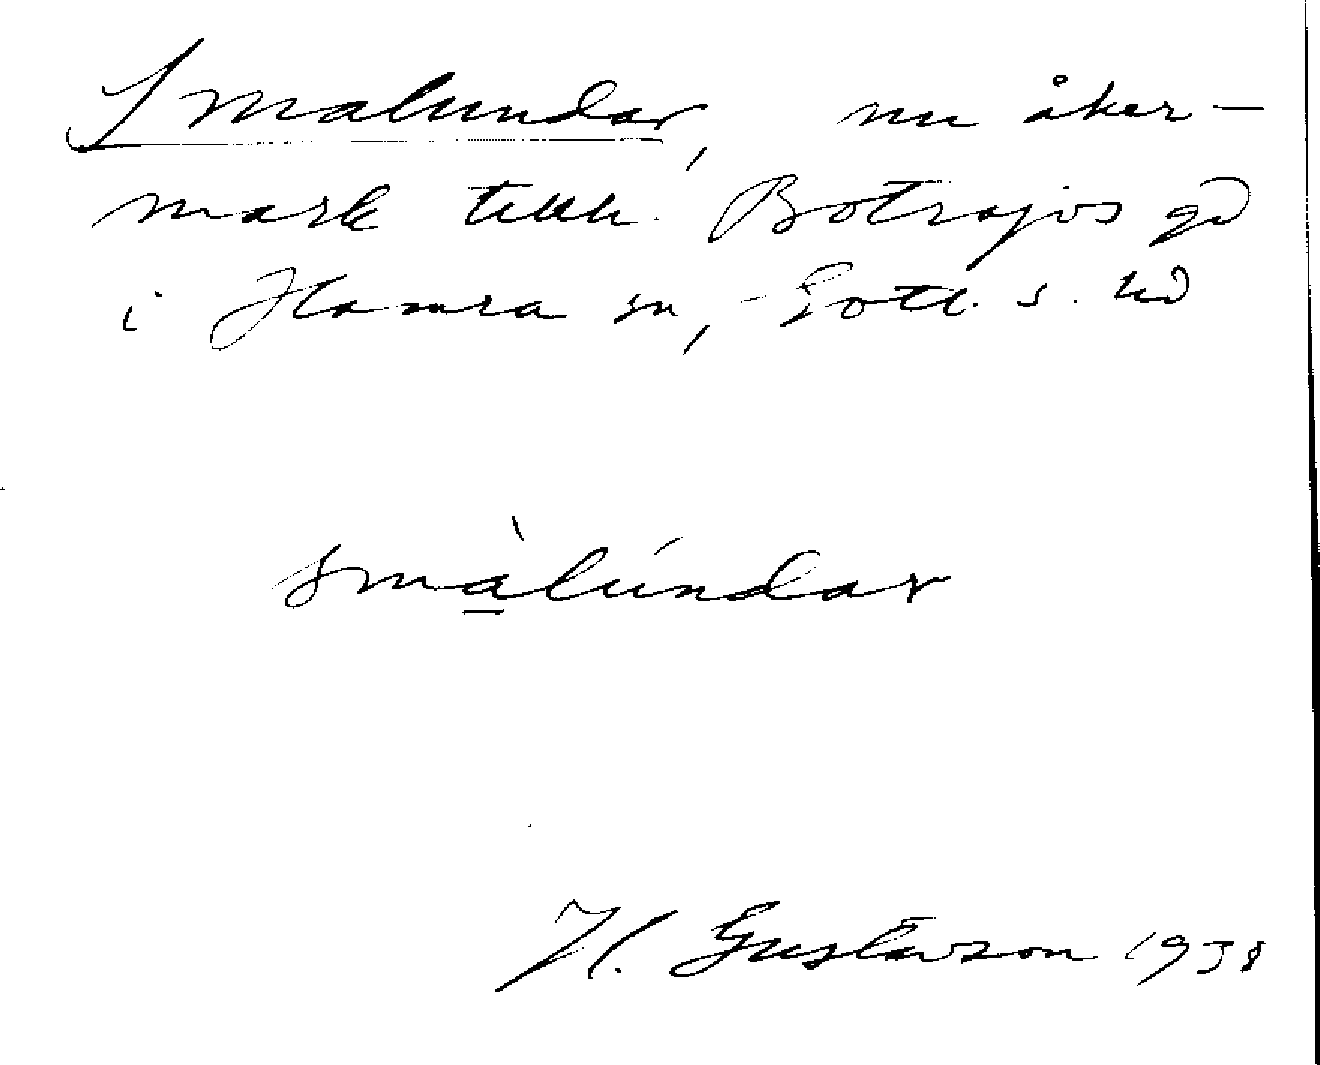 Smalundar, nu åker-
mark tillh. Botrajvs gd
i Hamra sn, Gotl. s. hd
smàlúndar
H. Gustavson 1938